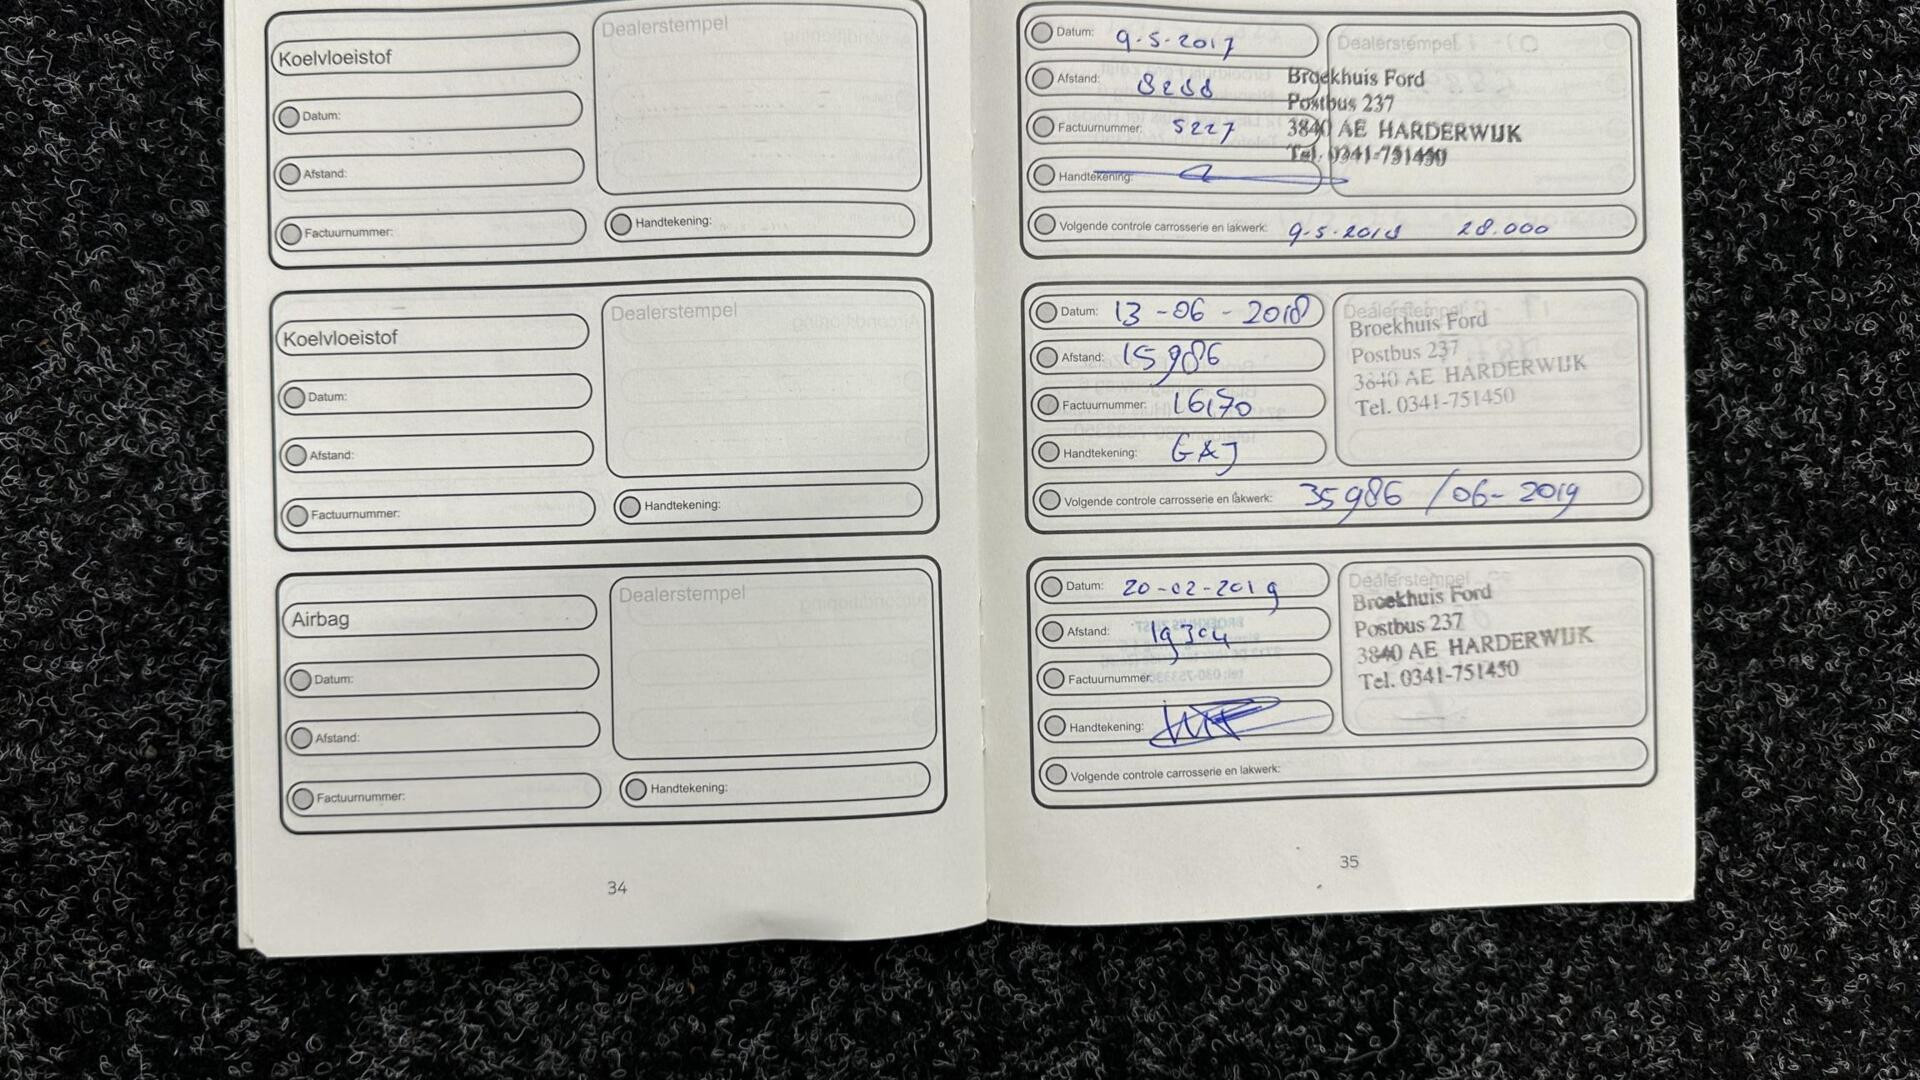 Koelvloeistof
Dealerstempel
Datum:
Afstand:
Factuurnummer:
Handtekening:
Koelvloeistof
Dealerstempel
Datum:
Afstand:
Factuurnummer:
Handtekening:
Airbag
Dealerstempel
Datum:
Afstand:
Factuurnummer:
Handtekening:
34
Datum: 9-5-2017
Dealerstempel
Afstand: 8288
Broekhuis Ford
Postbus 237
Factuurnummer: 5227
3840 AE HARDERWIJK
Tel. 0341-751450
Handtekening:
Volgende controle carrosserie en lakwerk: 9-5-2018 28.000
Datum: 13-06-2018
Dealerstempel
Broekhuis Ford
Afstand: 15986
Postbus 237
3840 AE HARDERWIJK
Factuurnummer: 16170
Tel. 0341-751450
Handtekening: G&J
Volgende controle carrosserie en lakwerk: 35986 /06-2019
Datum: 20-02-2019
Dealerstempel
Broekhuis Ford
Afstand: 19304
Postbus 237
3840 AE HARDERWIJK
Factuurnummer:
Tel. 0341-751450
Handtekening:
Volgende controle carrosserie en lakwerk:
35